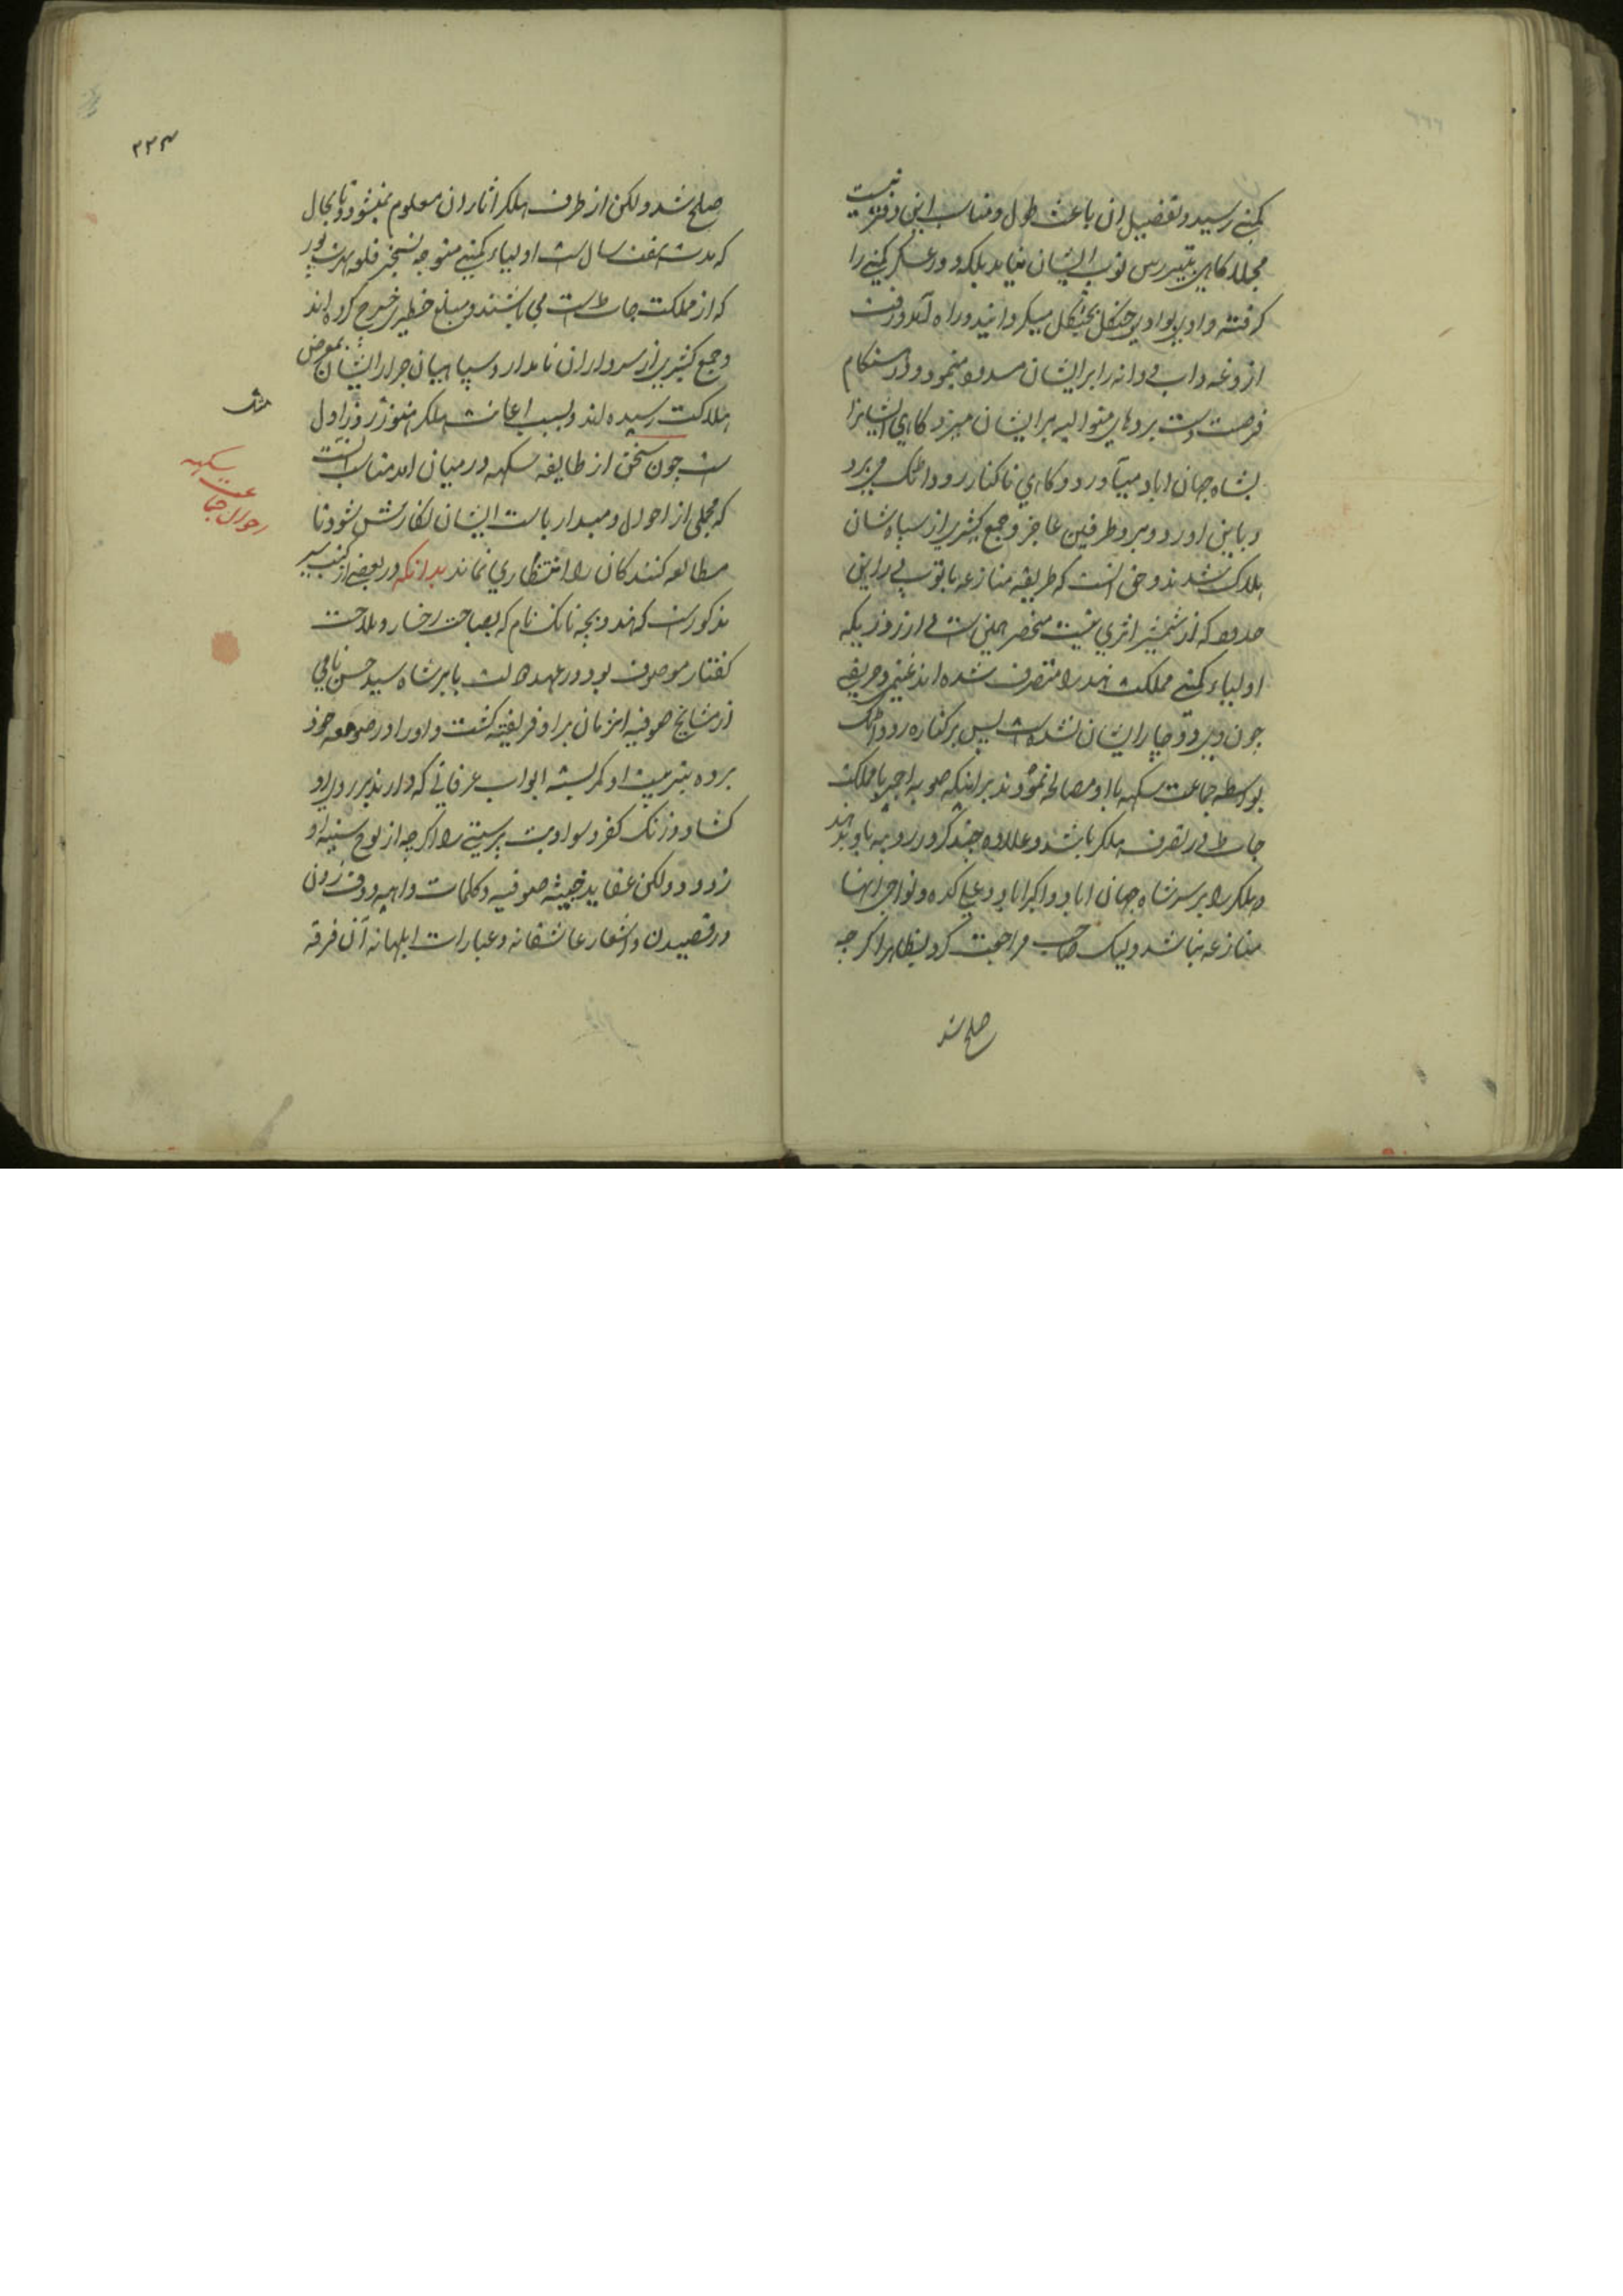 کمپنی رسید و تفصیل ان باعث طول و مناسب این دفتر نیست
مجملا کاهی بتیررس توپ ایشان نیاید بلکه دور عسکر کمپنی را
کرفته وادی بوادی جنکل بجنکل میکردانید و راه آمد و رفت
اذوغه و اب و دانه را بر ایشان مسدود مینمود و در هنکام
فرصت دست بردهای متوالیه بر ایشان میزد کاهی ایشانرا
بشاه جهان اباد میآورد و کاهی تا کنار رود اتک می برد
و باین اورد و برد طرفین عاجز و جمع کثیری از سپاه شان
هلاک شدند و حق انست که طریقه منازعه با توپ بی در این
حدود که از شمشیر اثری نیست منحصر همین است و از روزیکه
اولیاء کمپنی مملکت هند را متصرف شده اند غنیمی و حریفی
چون او دوچار ایشان نشده است پس بر کناره رود اتک
بواسطه جماعت سکهه با او مصالحه نمودند بر اینکه صوبه اجمیر با مملکت
جات در تصرف هلکر باشد و علاوه چند کرور روپیه باو بدهند
و هلکر را بر سر شاه جهان اباد و اکبراباد و علی کده و نواحی انها
منازعه نباشد و لیک صاحب مراجعت کرد بظاهر اکر چه
صلح شد
۲۲۳
صلح شد ولکن از طرف هلکر اثار ان معلوم نمیشود و تا بحال
که مدت هفت سال است اولیاء کمپنی متوجه تسخیر قلعه بهرت پور
که از مملکت جات است می باشند و مبلغ خطیر خرج کرده اند
و جمع کثیری از سرداران نامدار و سپاهیان جرار ایشان بمعرض
هلاکت رسیده اند و بسبب اعانت هلکر هنوز روز اول
است چون سخن از طایفه سکهه در میان امد مناسب است
که مجملی از احوال و مبدا ریاست ایشان نکارش شود تا
مطالعه کنندکان را انتظاری نماند بدانکه در بعضی از کتب سیر
مذکور است که هندو بچه نانک نام که بصباحت رخسار و ملاحت
کفتار موصوف بود در عهد دولت بابر شاه سید حسن نامی
از مشایخ صوفیه انزمان بر او فریفته کشت و او را در صومعه خود
برده بتربیت او کمر بسته ابواب عرفانی که دارند بر روی او
کشاد و زنک کفر و سواد بت پرستی را اکر چه از لوح سینه او
زدود ولکن عقاید خبیثه صوفیه و کلمات واهیه و دف زدن
و رقصیدن و اشعار عاشقانه و عبارات ابلهانه آن فرقه
احوال جماعت سکهه